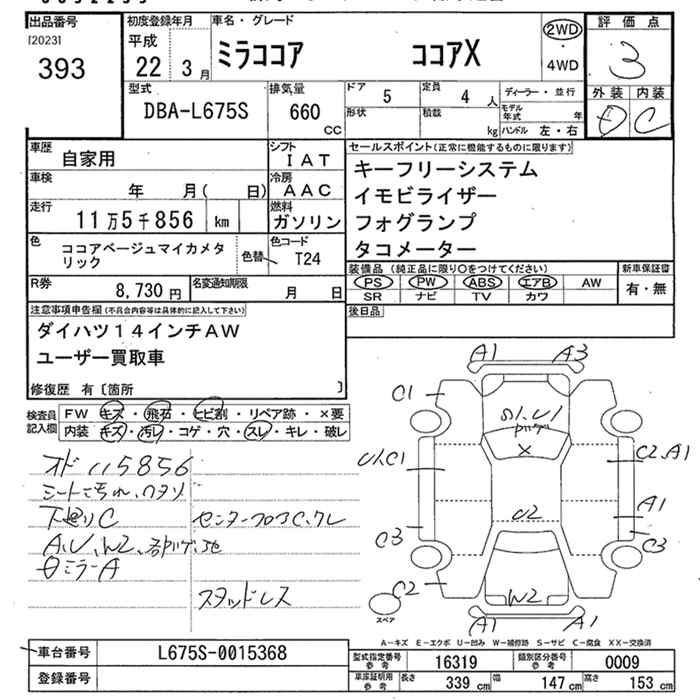 出品番号
[2023]
393
初度登録年月
平成
22 3 月
車名・グレード
ミラココア ココアX
2WD
・
4WD
評価点
3
外装 内装
D C
型式
DBA-L675S
排気量
660
CC
ドア 5 定員 4 人
形状 積載 kg
ディーラー・並行
モデル年式 年
ハンドル 左・右
車歴 自家用
シフト IAT
車検 年 月( 日)
冷房 AAC
走行 11万5千856 km
燃料 ガソリン
色 ココアベージュマイカメタリック
色替
色コード T24
R券 8,730 円
名変通知期限 月 日
セールスポイント(正常に機能するものに限ります)
キーフリーシステム
イモビライザー
フォグランプ
タコメーター
装備品(純正品に限り○をつけてください)
PS PW ABS エアB AW
SR ナビ TV カワ
新車保証書
有・無
後日品
注意事項申告欄(不具合内容等は具体的に記入して下さい)
ダイハツ14インチAW
ユーザー買取車
修復歴 有[箇所 ]
検査員記入欄
FW キズ・飛石・ヒビ割・リペア跡・×要
内装 キズ・汚レ・コゲ・穴・スレ・キレ・破レ
オド 115856
シートこちれ、ワオソ
下廻りC センターフロアC、クレ
A、U、W2、
ミラーA
スタッドレス
A1 A3
C1
U1.C1
C2.A1
A1
C3
C3
C2
U2
W2
A1 A1
スペア
A-キズ E-エクボ U-凹み W-補修跡 S-サビ C-腐食 XX-交換済
車台番号 L675S-0015368
登録番号
型式指定番号 参考 16319 類別区分番号 参考 0009
車庫証明用 参考 長さ 339 cm 幅 147 cm 高さ 153 cm